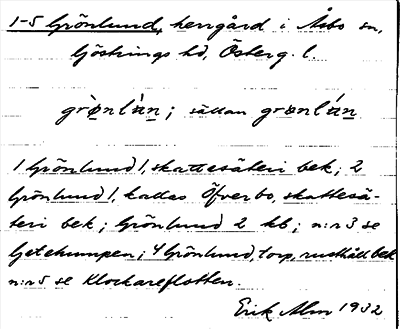 1-5 Grönlund, herrgård i Åsbo sn,
Göstrings hd, Österg. l.
grø̀nlún; sällan grønlún
1 Grönlund 1, skattesäteri bek; 2
Grönlund 1, kallas Öfverbo, skattesä-
teri bek; Grönlund 2 kb; n:r 3 se
Getehumpen; 4 Grönlund, torp, rusthåll bek
n:r 5 se Klockareflotten.
Erik Alm 1932